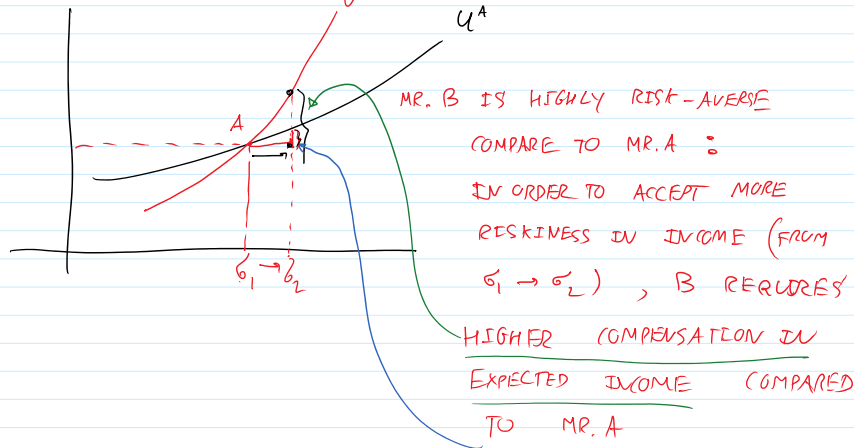 U^A
MR. B IS HIGHLY RISK-AVERSE
A
COMPARE TO MR. A :
IN ORDER TO ACCEPT MORE
RISKINESS IN INCOME (FROM
σ₁ → σ₂
σ₁ → σ₂) , B REQUIRES
HIGHER COMPENSATION IN
EXPECTED INCOME COMPARED
TO MR. A